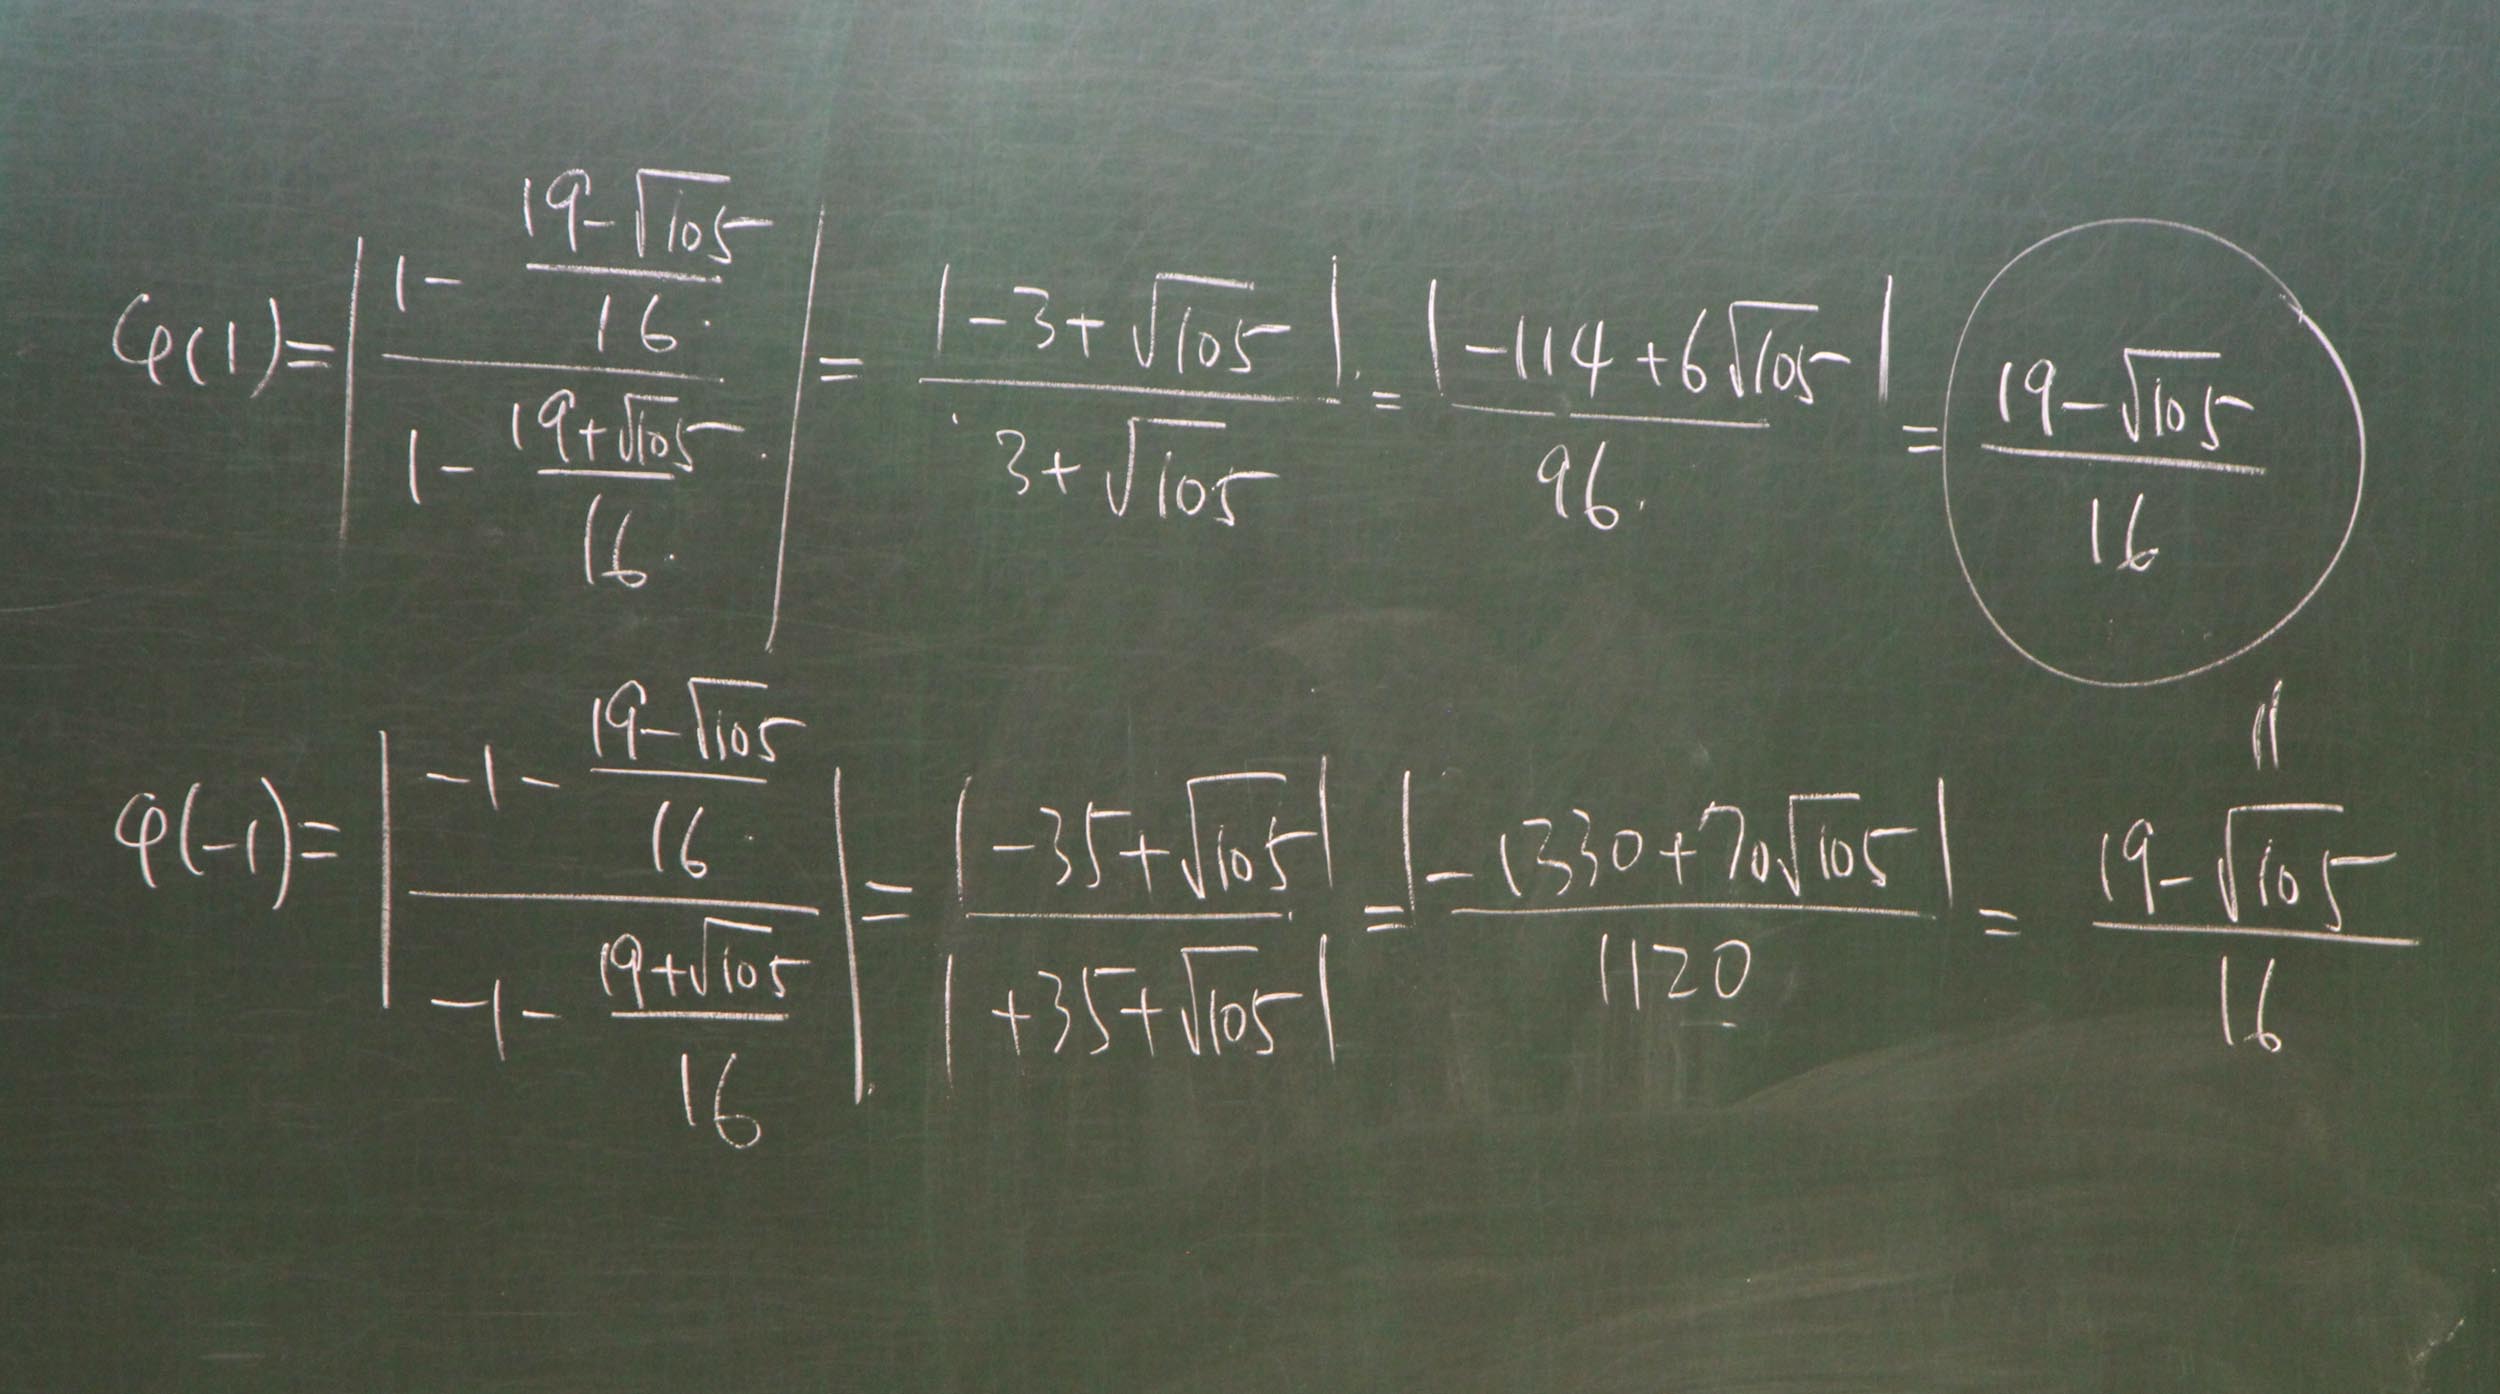 φ(1) = | (1 - (19-√105)/16) / (1 - (19+√105)/16) | = |-3+√105| / (3+√105) = |-114+6√105| / 96 = (19-√105)/16
=
φ(-1) = | (-1 - (19-√105)/16) / (-1 - (19+√105)/16) | = |-35+√105| / |+35+√105| = |-1330+70√105| / 1120 = (19-√105)/16